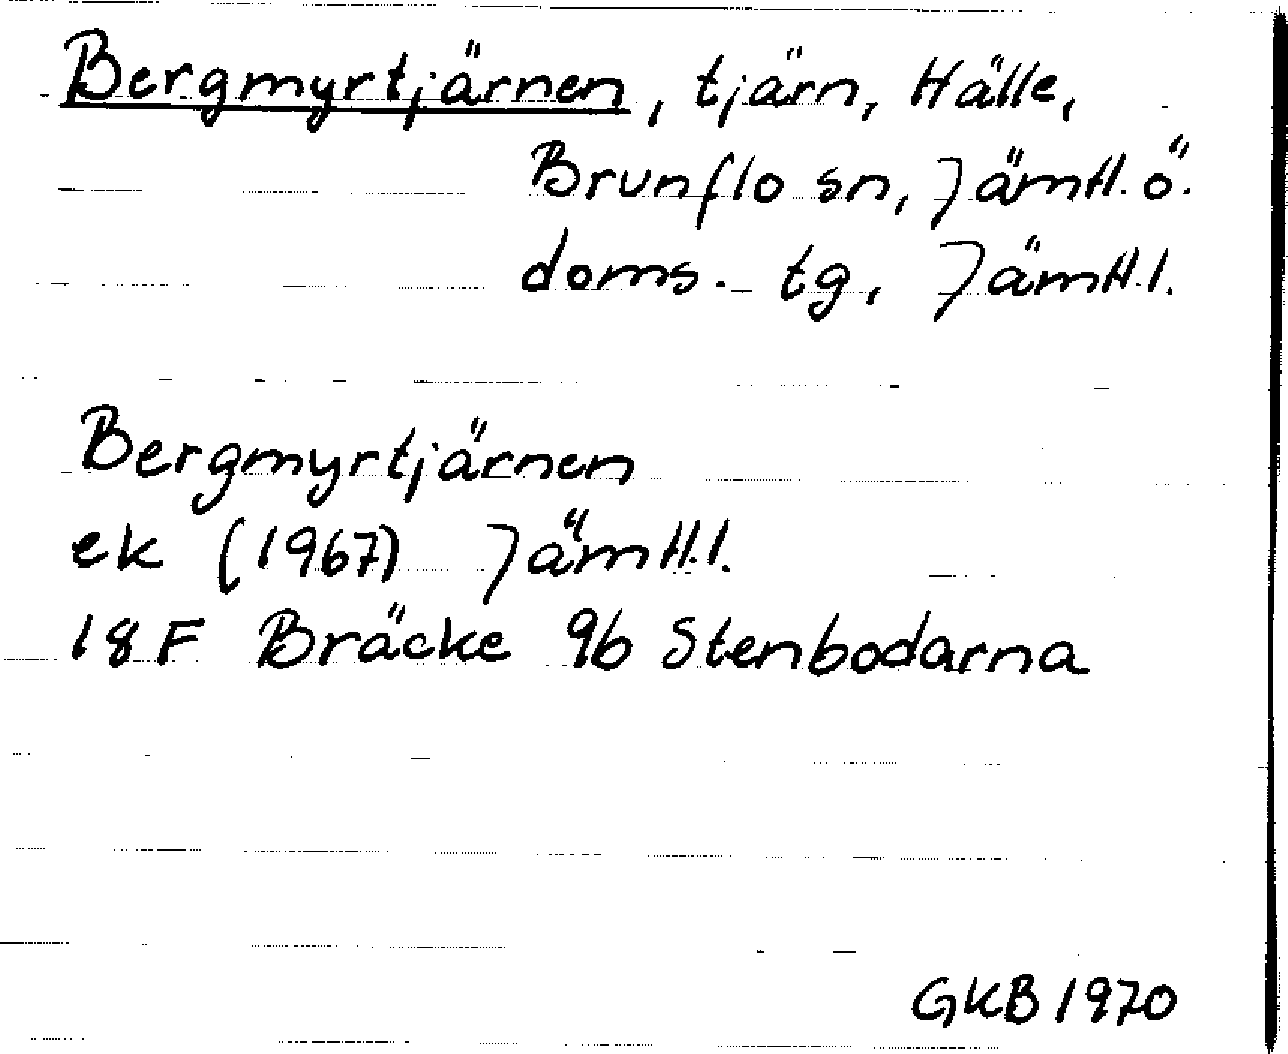 Bergmyrtjärnen, tjärn, Hälle,
Brunflo sn, Jämtl. ö.
doms. tg, Jämtl.l.
Bergmyrtjärnen
ek (1967) Jämtl.l.
18F Bräcke 9b Stenbodarna
GKB 1970